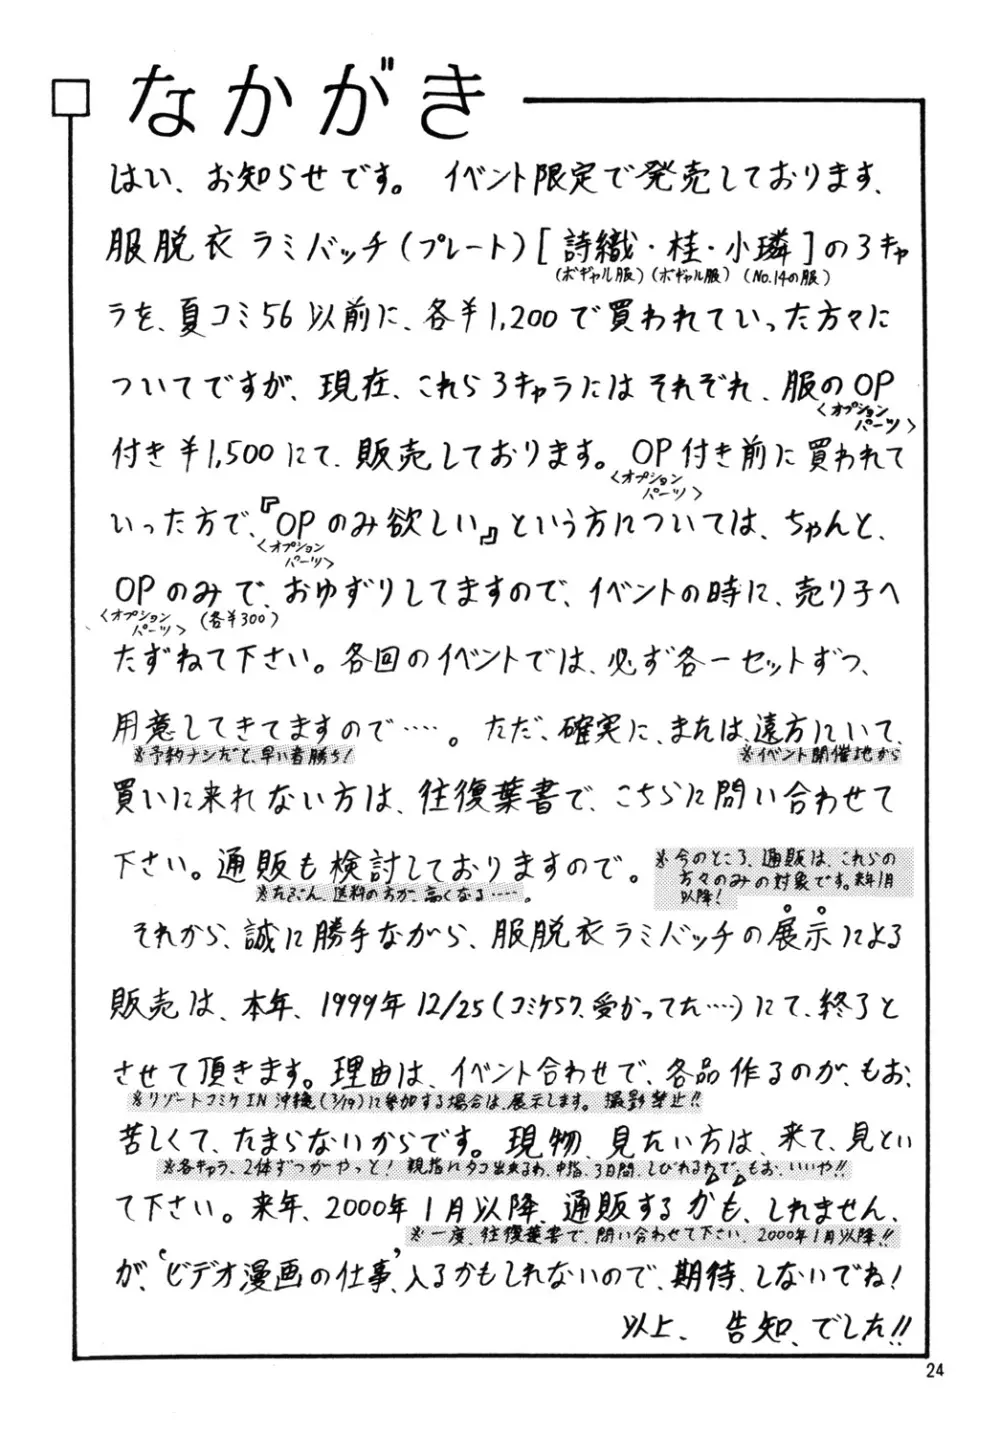 なかがき
はい、お知らせです。 イベント限定で発売しております、
服脱衣ラミバッチ(プレート)[詩織・桂・小璘]の3キャ
(ボギャル服)(ボギャル服)(No.14の服)
ラを、夏コミ56以前に、各¥1,200で買われていった方々に
ついてですが、現在、これら3キャラにはそれぞれ、服のOP
<オプションパーツ>
付き¥1,500にて、販売しております。OP付き前に買われて
<オプションパーツ>
いった方で、『OPのみ欲しい』という方については、ちゃんと、
<オプションパーツ>
OPのみで、おゆずりしてますので、イベントの時に、売り子へ
<オプションパーツ> (各¥300)
たずねて下さい。各回のイベントでは、必ず各一セットずつ、
用意してきてますので‥‥。ただ、確実に、または、遠方にいて、
※予約ナシだと、早い者勝ち! ※イベント開催地から
買いに来れない方は、往復葉書で、こちらに問い合わせて
下さい。通販も検討しておりますので。
※たぶん、送料の方が、高くなる‥‥。
※今のところ、通販は、これらの
方々のみの対象です。来年1月
以降!
それから、誠に勝手ながら、服脱衣ラミバッチの展示による
販売は、本年、1999年12/25(コミケ57、受かってた‥‥)にて、終了と
させて頂きます。理由は、イベント合わせで、各品作るのが、もお、
※リゾートコミケIN沖縄(3/19)に参加する場合は、展示します。撮影禁止!!
苦しくて、たまらないからです。現物、見たい方は、来て、見とい
※各キャラ、2体ずつがやっと!親指にタコ出来るわ、中指、3日間、しびれるわで、もお、いいや!!
て下さい。来年、2000年1月以降、通販するかも、しれません、
※一度、往復葉書で、問い合わせて下さい、2000年1月以降!!
が、‘ビデオ漫画の仕事’、入るかもしれないので、期待、しないでね!
以上、告知、でした!!
24